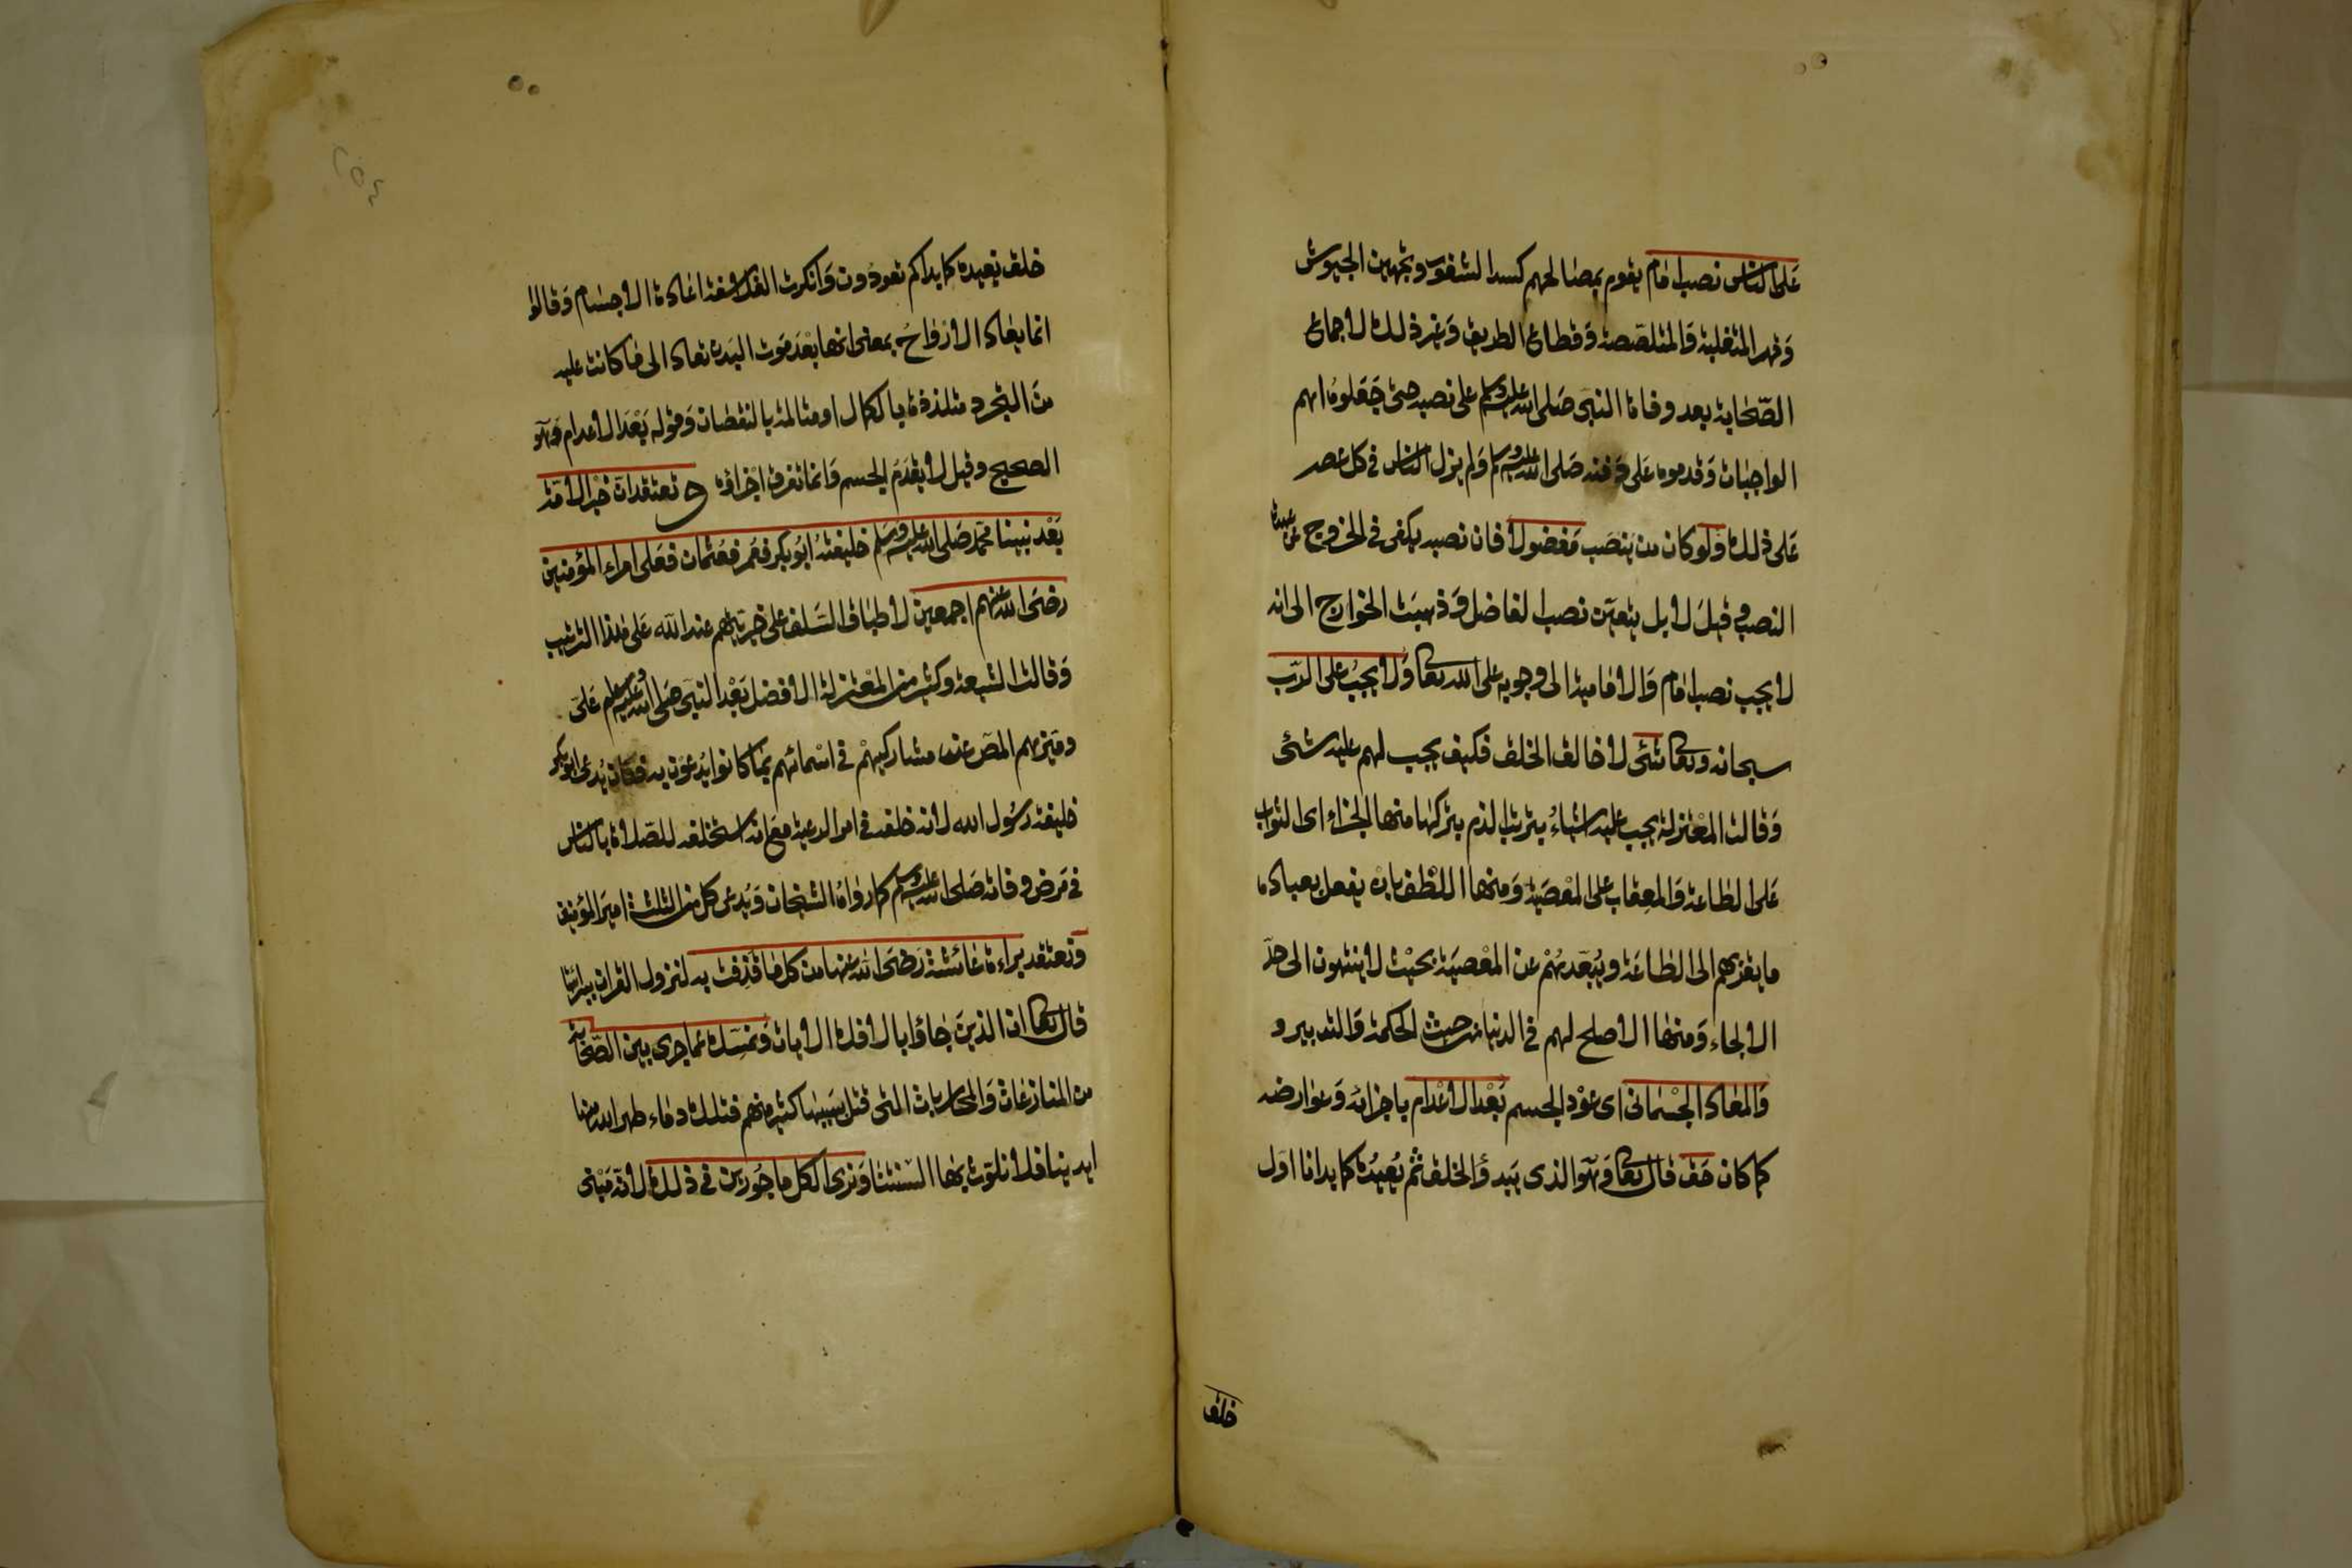 على الناس نصب امام يقوم بمصالحهم كسد الثغور وتجهيز الجيوش
وقهر المتغلبة والمتلصصة وقطاع الطريق وغير ذلك لاجماع
الصحابة بعد وفاة النبي صلى الله عليه وسلم على نصبه حتى جعلوه اهم
الواجبات وقدموه على دفنه صلى الله عليه وسلم ولم يزل الناس في كل عصر
على ذلك ولو كان من ينصب مفضولا فان نصبه يكفى في الخروج عن عهدة
النصب وقيل لا بل يتعين نصب الفاضل وذهبت الخوارج الى انه
لا يجب نصب امام والامامية الى وجوبه على الله تعالى ولا يجب على الرب
سبحانه وتعالى شئى لا خالق الخلق فكيف يجب لهم عليه شئى
وقالت المعتزلة يجب عليه اشياء يترتب الذم بتركها منها الجزاء اى الثواب
على الطاعة والعقاب على المعصية ومنها اللطف بان يفعل بعباده
ما يقربهم الى الطاعة ويبعدهم عن المعصية بحيث لا ينتهون الى حد
الالجاء ومنها الاصلح لهم في الدنيا من حيث الحكمة والتدبير و
والمعاد الجسمانى اى عود الجسم بعد الاعدام باجزائه وعوارضه
كما كان حق قال تعالى وهو الذى يبدؤ الخلق ثم يعيده كما بدانا اول
خلق
خلق نعيده كما بداكم تعودون وانكرت الفلاسفة اعادة الاجسام وقالوا
انما يعاد الارواح بمعنى انها بعد موت البدن تعاد الى ما كانت عليه
من التجرد متلذذة بالكمال او متالمة بالنقصان وقوله بعد الاعدام هو
الصحيح وقيل لا يعدم الجسم وانما تفرق اجزاؤه ونعتقد ان خير الامة
بعد نبينا محمد صلى الله عليه وسلم خليفته ابو بكر فعمر فعثمان فعلى امراء المؤمنين
رضى الله عنهم اجمعين لاطباق السلف على خيريتهم عند الله على هذا الترتيب
وقالت الشيعة وكثير من المعتزلة الافضل بعد النبي صلى الله عليه وسلم على
وميزهم المص عن مشاركيهم في اسمائهم بما كانوا يدعون به فكان يدعى ابو بكر
خليفة رسول الله لانه خلفه في امر الرعية مع انه استخلفه للصلاة بالناس
في مرض وفاته صلى الله عليه وسلم كما رواه الشيخان ويدعى كل من الثلثة امير المؤمنين
ونعتقد براءة عائشة رضى الله عنها من كل ما قذفت به لنزول القران ببرائتها
قال تعالى ان الذين جاؤا بالافك الايات ونمسك عما جرى بين الصحابة
من المنازعات والمحاربات التى قتل بسببها كثير منهم فتلك دماء طهر الله منها
ايدينا فلا نلوث بها السنتنا ونرى الكل ماجورين في ذلك لانه مبنى